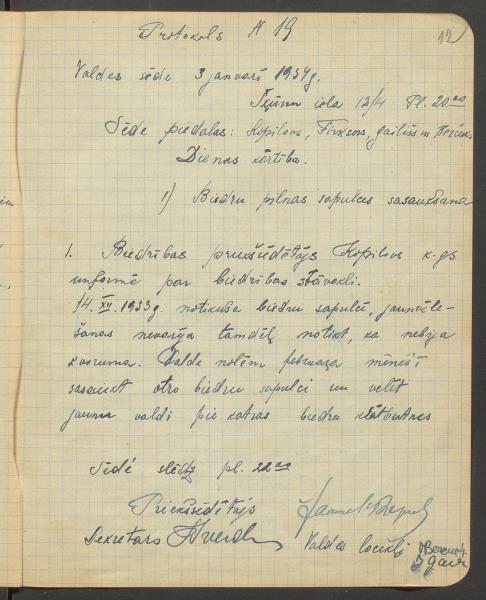 Protokols N 19
12
Valdes sēde 3 janvarī 1934g.
iela 12/14 Pl. 20.00
Sēde piedalas: Kopilovs, Firksons, Gailiss un
Dienas kārtība.
1) Biedru pilnas sapulces sasaukšana
1. Biedrības Kopilovs k-gs
informē par biedrības stāvokli.
14. XII. 1933g. notikuša biedru sapulcē, jaunvēlē-
šanas nevarēja tamdēļ notikt, ka nebija
kvoruma. Valde nolēm februaŗa mēnesī
sasaukt otro biedru sapulci un vēlēt
jaunu valdi pie katras biedru klātbūtnes
Sēdē slēdz pl. 22.00
Priekšsēdētājs
Sekretars Valdes locekļi